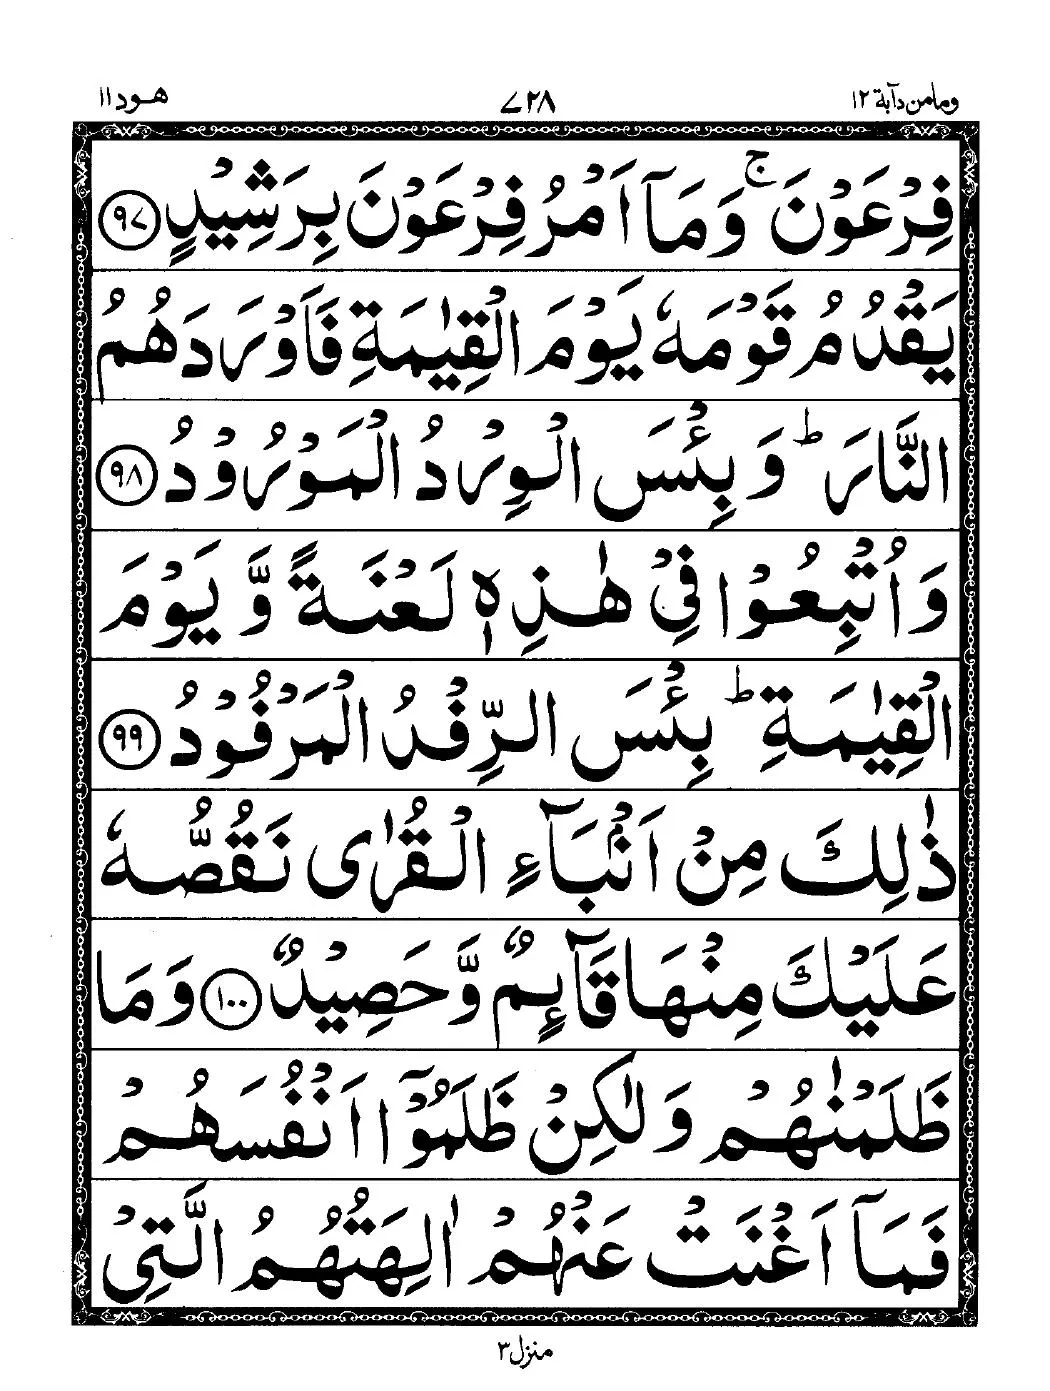 وما من دآبة ۱۲
۷۲۸
هود ۱۱
فِرۡعَوۡنَ ۚ وَمَاۤ اَمۡرُ فِرۡعَوۡنَ بِرَشِيۡدٍ ﴿۹۷﴾
يَقۡدُمُ قَوۡمَهٗ يَوۡمَ الۡقِيٰمَةِ فَاَوۡرَدَهُمُ
النَّارَ ؕ وَ بِئۡسَ الۡوِرۡدُ الۡمَوۡرُوۡدُ ﴿۹۸﴾
وَ اُتۡبِعُوۡا فِىۡ هٰذِهٖ لَعۡنَةً وَّ يَوۡمَ
الۡقِيٰمَةِ ؕ بِئۡسَ الرِّفۡدُ الۡمَرۡفُوۡدُ ﴿۹۹﴾
ذٰلِكَ مِنۡ اَنۡۢبَآءِ الۡقُرٰى نَقُصُّهٗ
عَلَيۡكَ مِنۡهَا قَآٮِٕمٌ وَّحَصِيۡدٌ ﴿۱۰۰﴾ وَ مَا
ظَلَمۡنٰهُمۡ وَ لٰكِنۡ ظَلَمُوۡۤا اَنۡفُسَهُمۡ
فَمَاۤ اَغۡنَتۡ عَنۡهُمۡ اٰلِهَتُهُمُ الَّتِىۡ
منزل ۳